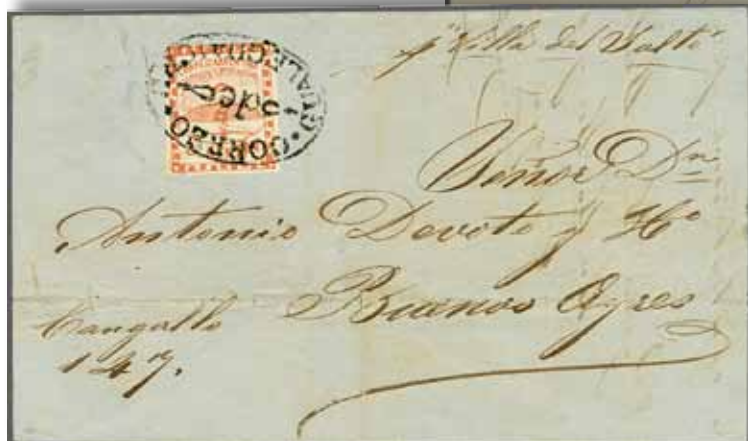 p "Villa del Salto"
CORREO
GUALEGUAY
Señor Dn
Antonio Devoto y Ho
Buenos Ayres
Cangallo
147.